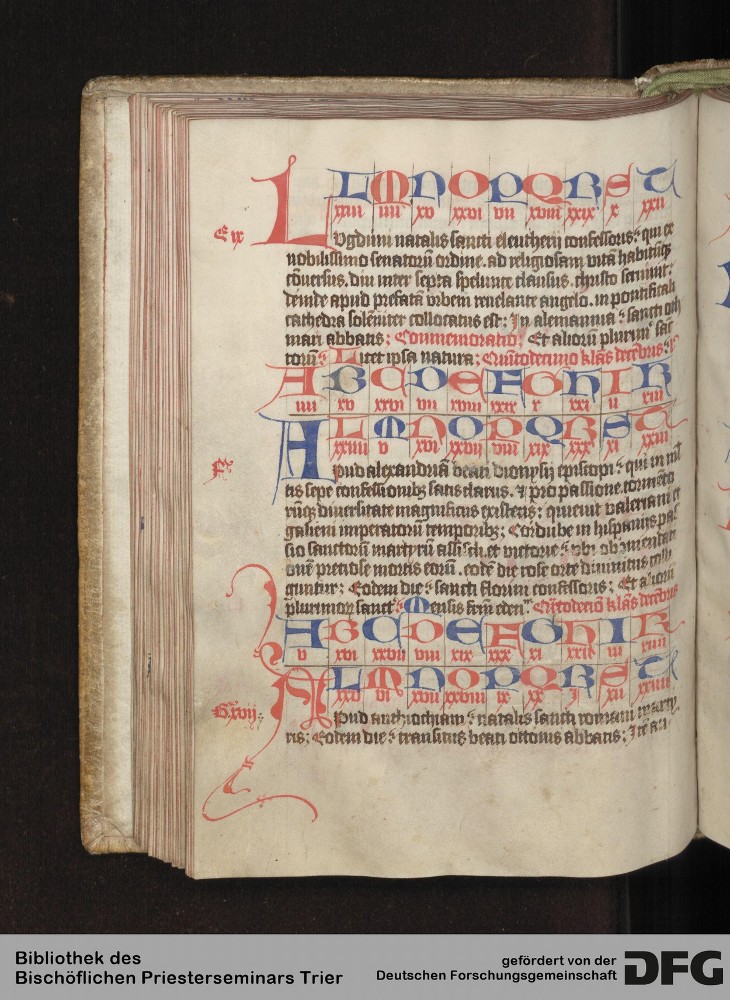 L M N O P Q R S T
xxiii iiii xv xxvi vii xviii xxix x xxii
E ix
Lugduni natalis sancti eleutherii confessoris: qui ex
nobilissimo senatorū ordine. ad religiosam vitā habitūqꝫ
cōuersus. diu inter septa spelunce clausus. christo seruiuit:
deinde apud prefatā vrbem reuelante angelo. in pontificali
cathedra solēniter collocatus est: In alemannia sancti oth
mari abbatis: Commemoratio: Et aliorū plurimoꝝ sāc
torū: Licet ipsa natura: Quītodecimo klās decēbris:
A B C D E F G H I K
iiii xv xxvi vii xviii xxix x xxi ii xiii
L M N O P Q R S T
xxiiii v xvi xxvii viii xix xxx xi xxiii
F
Apud alexandriā beati dionysij episcopi: qui in mĺ
tis sepe confessionibꝫ satis clarus. ⁊ pro passione tormēto
rūqꝫ diuersitate magnificus existens: quieuit valeriani et
galieni imperatorū temporibꝫ: Cordube in hispanijs pas
sio sanctorū martyrū aciscli. et victorie: vbi ob
onē preciose mortis eorū. eodē die rose orte diuinitus colli
guntur: Eodem die: sancti florini confessoris: Et aliorū
plurimorꝫ sanctꝝ: Mensis Quītodeciō klās decēbris
A B C D E F G H I K
v xvi xxvii viii xix xxx xi xxii iii xiiii
L M N O P Q R S T
xxv vi xvii xxviii ix xx i xii xxiiii
G xvij:
Apud anthiochiam: natalis sancti romani marty
ris: Eodem die: transitus beati ottonis abbatis: Itē
Bibliothek des
Bischöflichen Priesterseminars Trier
gefördert von der
Deutschen Forschungsgemeinschaft
DFG